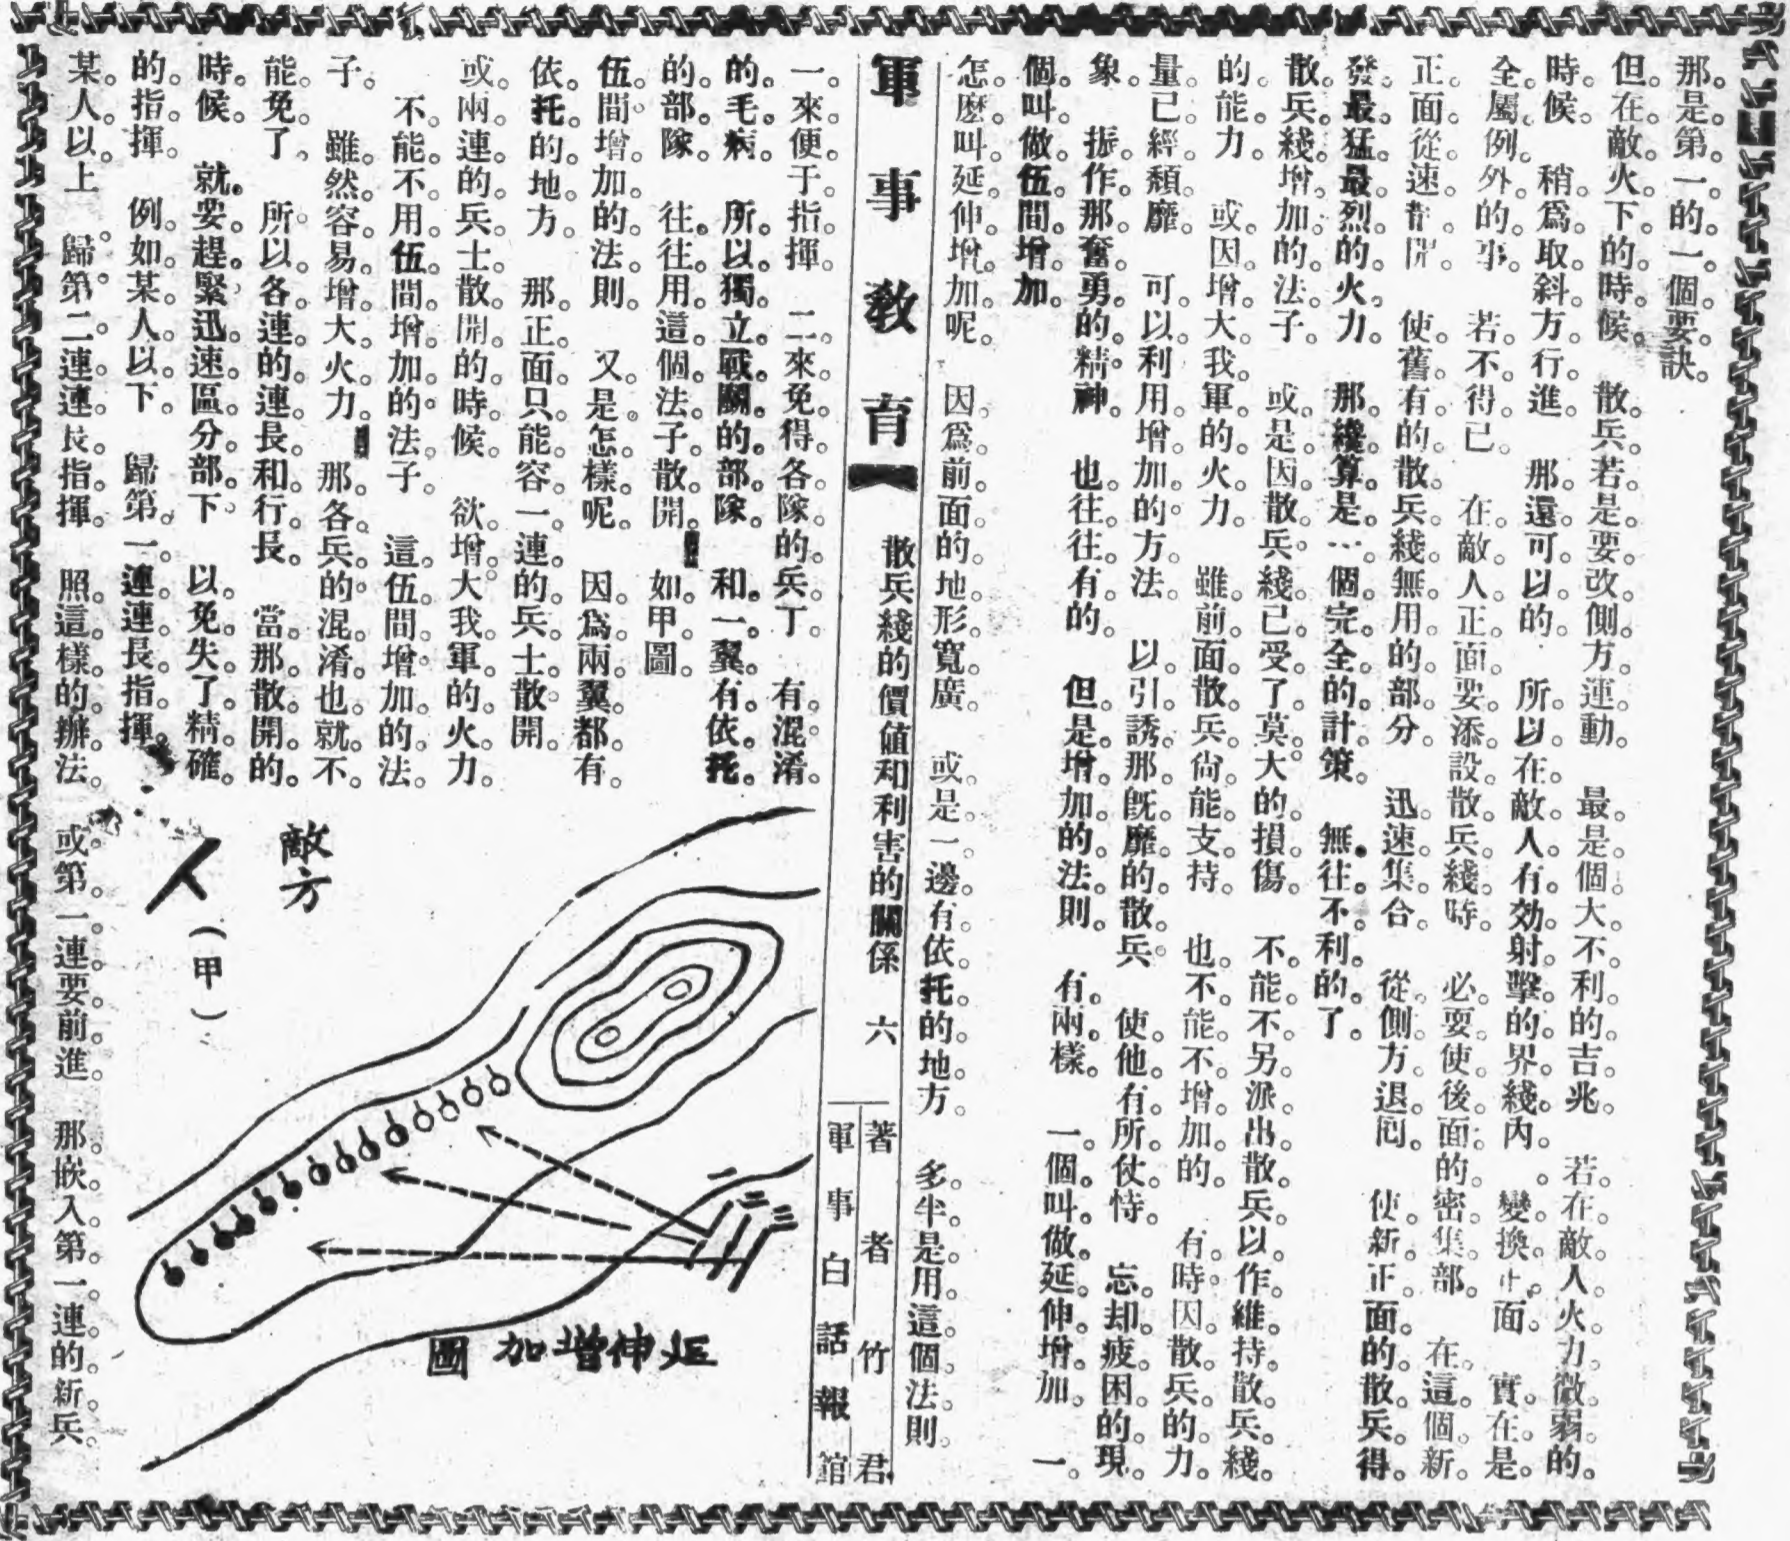 那是第一的一個要訣
但在敵火下的時候　散兵若是要改側方運動　最是個大不利的吉兆　若在敵人火力微弱的
時候　稍爲取斜方行進　那還可以的　所以在敵人有効射擊的界綫內　變換正面　實在是
全屬例外的事　若不得已　在敵人正面要添設散兵綫時　必要使後面的密集部　在這個新
正面從速散開　使舊有的散兵綫無用的部分　迅速集合　從側方退囘　使新正面的散兵得
發最猛最烈的火力　那纔算是一個完全的計策　無往不利的了
散兵綫增加的法子　或是因散兵綫已受了莫大的損傷　不能不另派出散兵以作維持散兵綫
的能力　或因增大我軍的火力　雖前面散兵尙能支持　也不能不增加的　有時因散兵的力
量已經頹靡　可以利用增加的方法　以引誘那旣靡的散兵　使他有所仗恃　忘却疲困的現
象　振作那奮勇的精神　也往往有的　但是增加的法則　有兩樣　一個叫做延伸增加　一
個叫做伍間增加
怎麼叫延伸增加呢　因爲前面的地形寬廣　或是一邊有依托的地方　多半是用這個法則
軍事教育　散兵綫的價値和利害的關係　六
著者竹君
軍事白話報館
一來便于指揮　二來免得各隊的兵丁　有混淆
的毛病　所以獨立戰鬭的部隊　和一翼有依托
的部隊　往往用這個法子散開　如甲圖
伍間增加的法則　又是怎樣呢　因爲兩翼都有
依托的地方　那正面只能容一連的兵士散開
或兩連的兵士散開的時候　欲增大我軍的火力
不能不用伍間增加的法子　這伍間增加的法
子　雖然容易增大火力　那各兵的混淆也就不
能免了　所以各連的連長和行長　當那散開的
時候　就要趕緊迅速區分部下　以免失了精確
的指揮　例如某人以下　歸第一連連長指揮
某人以上　歸第二連連長指揮　照這樣的辦法　或第一連要前進　那嵌入第一連的新兵
敵方
（甲）
一
二
三
延伸增加圖